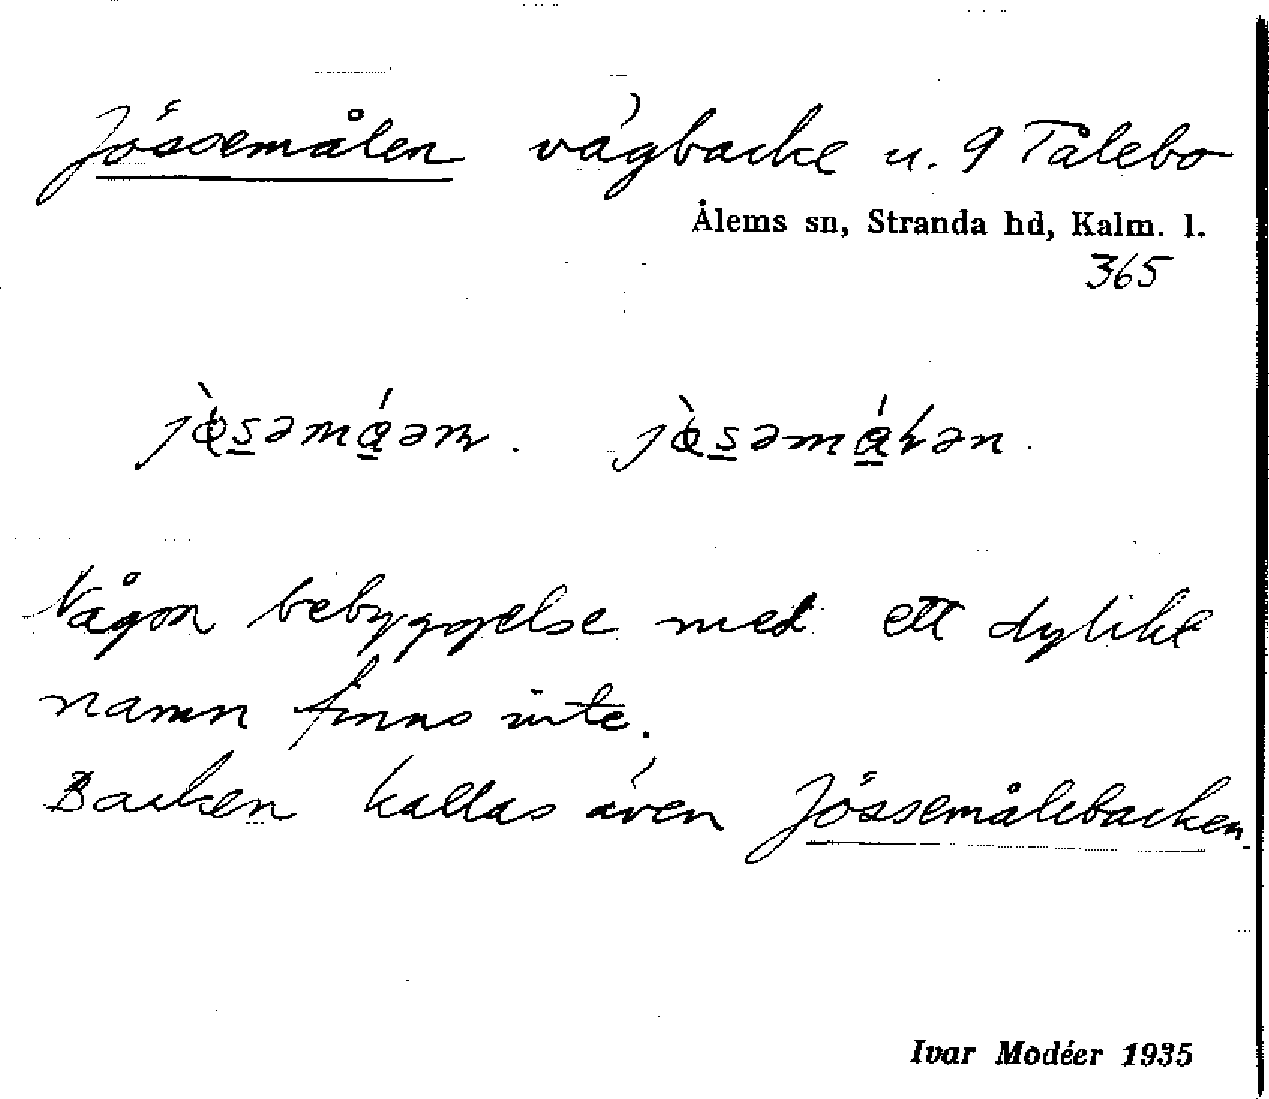 Jössemålen vägbacke u. 9 Tålebo
Ålems sn, Stranda hd, Kalm. l.
365
Någon bebyggelse med ett dylikt
namn finns inte.
Backen kallas även Jössemålebacken.
Ivar Modéer 1935